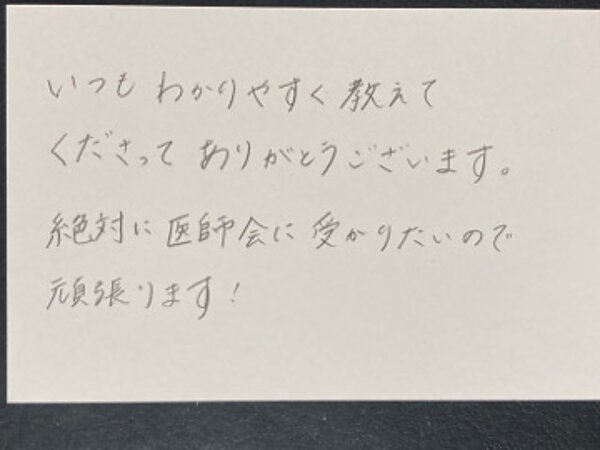 いつもわかりやすく教えて
くださってありがとうございます。
絶対に医師会に受かりたいので
頑張ります！